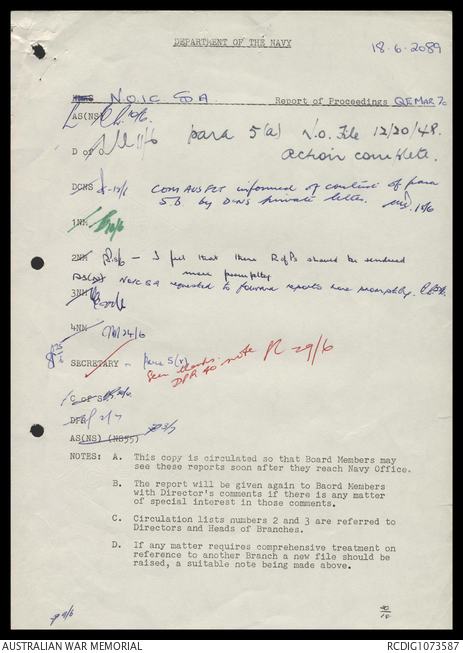 DEPARTMENT OF THE NAVY
18-6-2089
N.O.I.C. SA Report of Proceedings QE MAR 70
AS(NS) 10/6.
D of O 11/6 para 5(a) No. File 12/20/48.
Action complete.
DCNS COMAUSFLT informed of content of para
5.b. by DCNS private letter. 18/6
1NM
2NM — I feel that these RofPs should be rendered
more promptly
AS(NS) NOIC SA requested to forward reports more promptly.
3NM
4NM 24/6
SECRETARY - para 5(x)
Seen thanks. 29/6
DPR to note
C OF S
DPR 2/7
AS(NS) (NS55) 3/7
NOTES: A. This copy is circulated so that Board Members may
see these reports soon after they reach Navy Office.
B. The report will be given again to Baord Members
with Director's comments if there is any matter
of special interest in those comments.
C. Circulation lists numbers 2 and 3 are referred to
Directors and Heads of Branches.
D. If any matter requires comprehensive treatment on
reference to another Branch a new file should be
raised, a suitable note being made above.
9/6
AUSTRALIAN WAR MEMORIAL RCDIG1073587